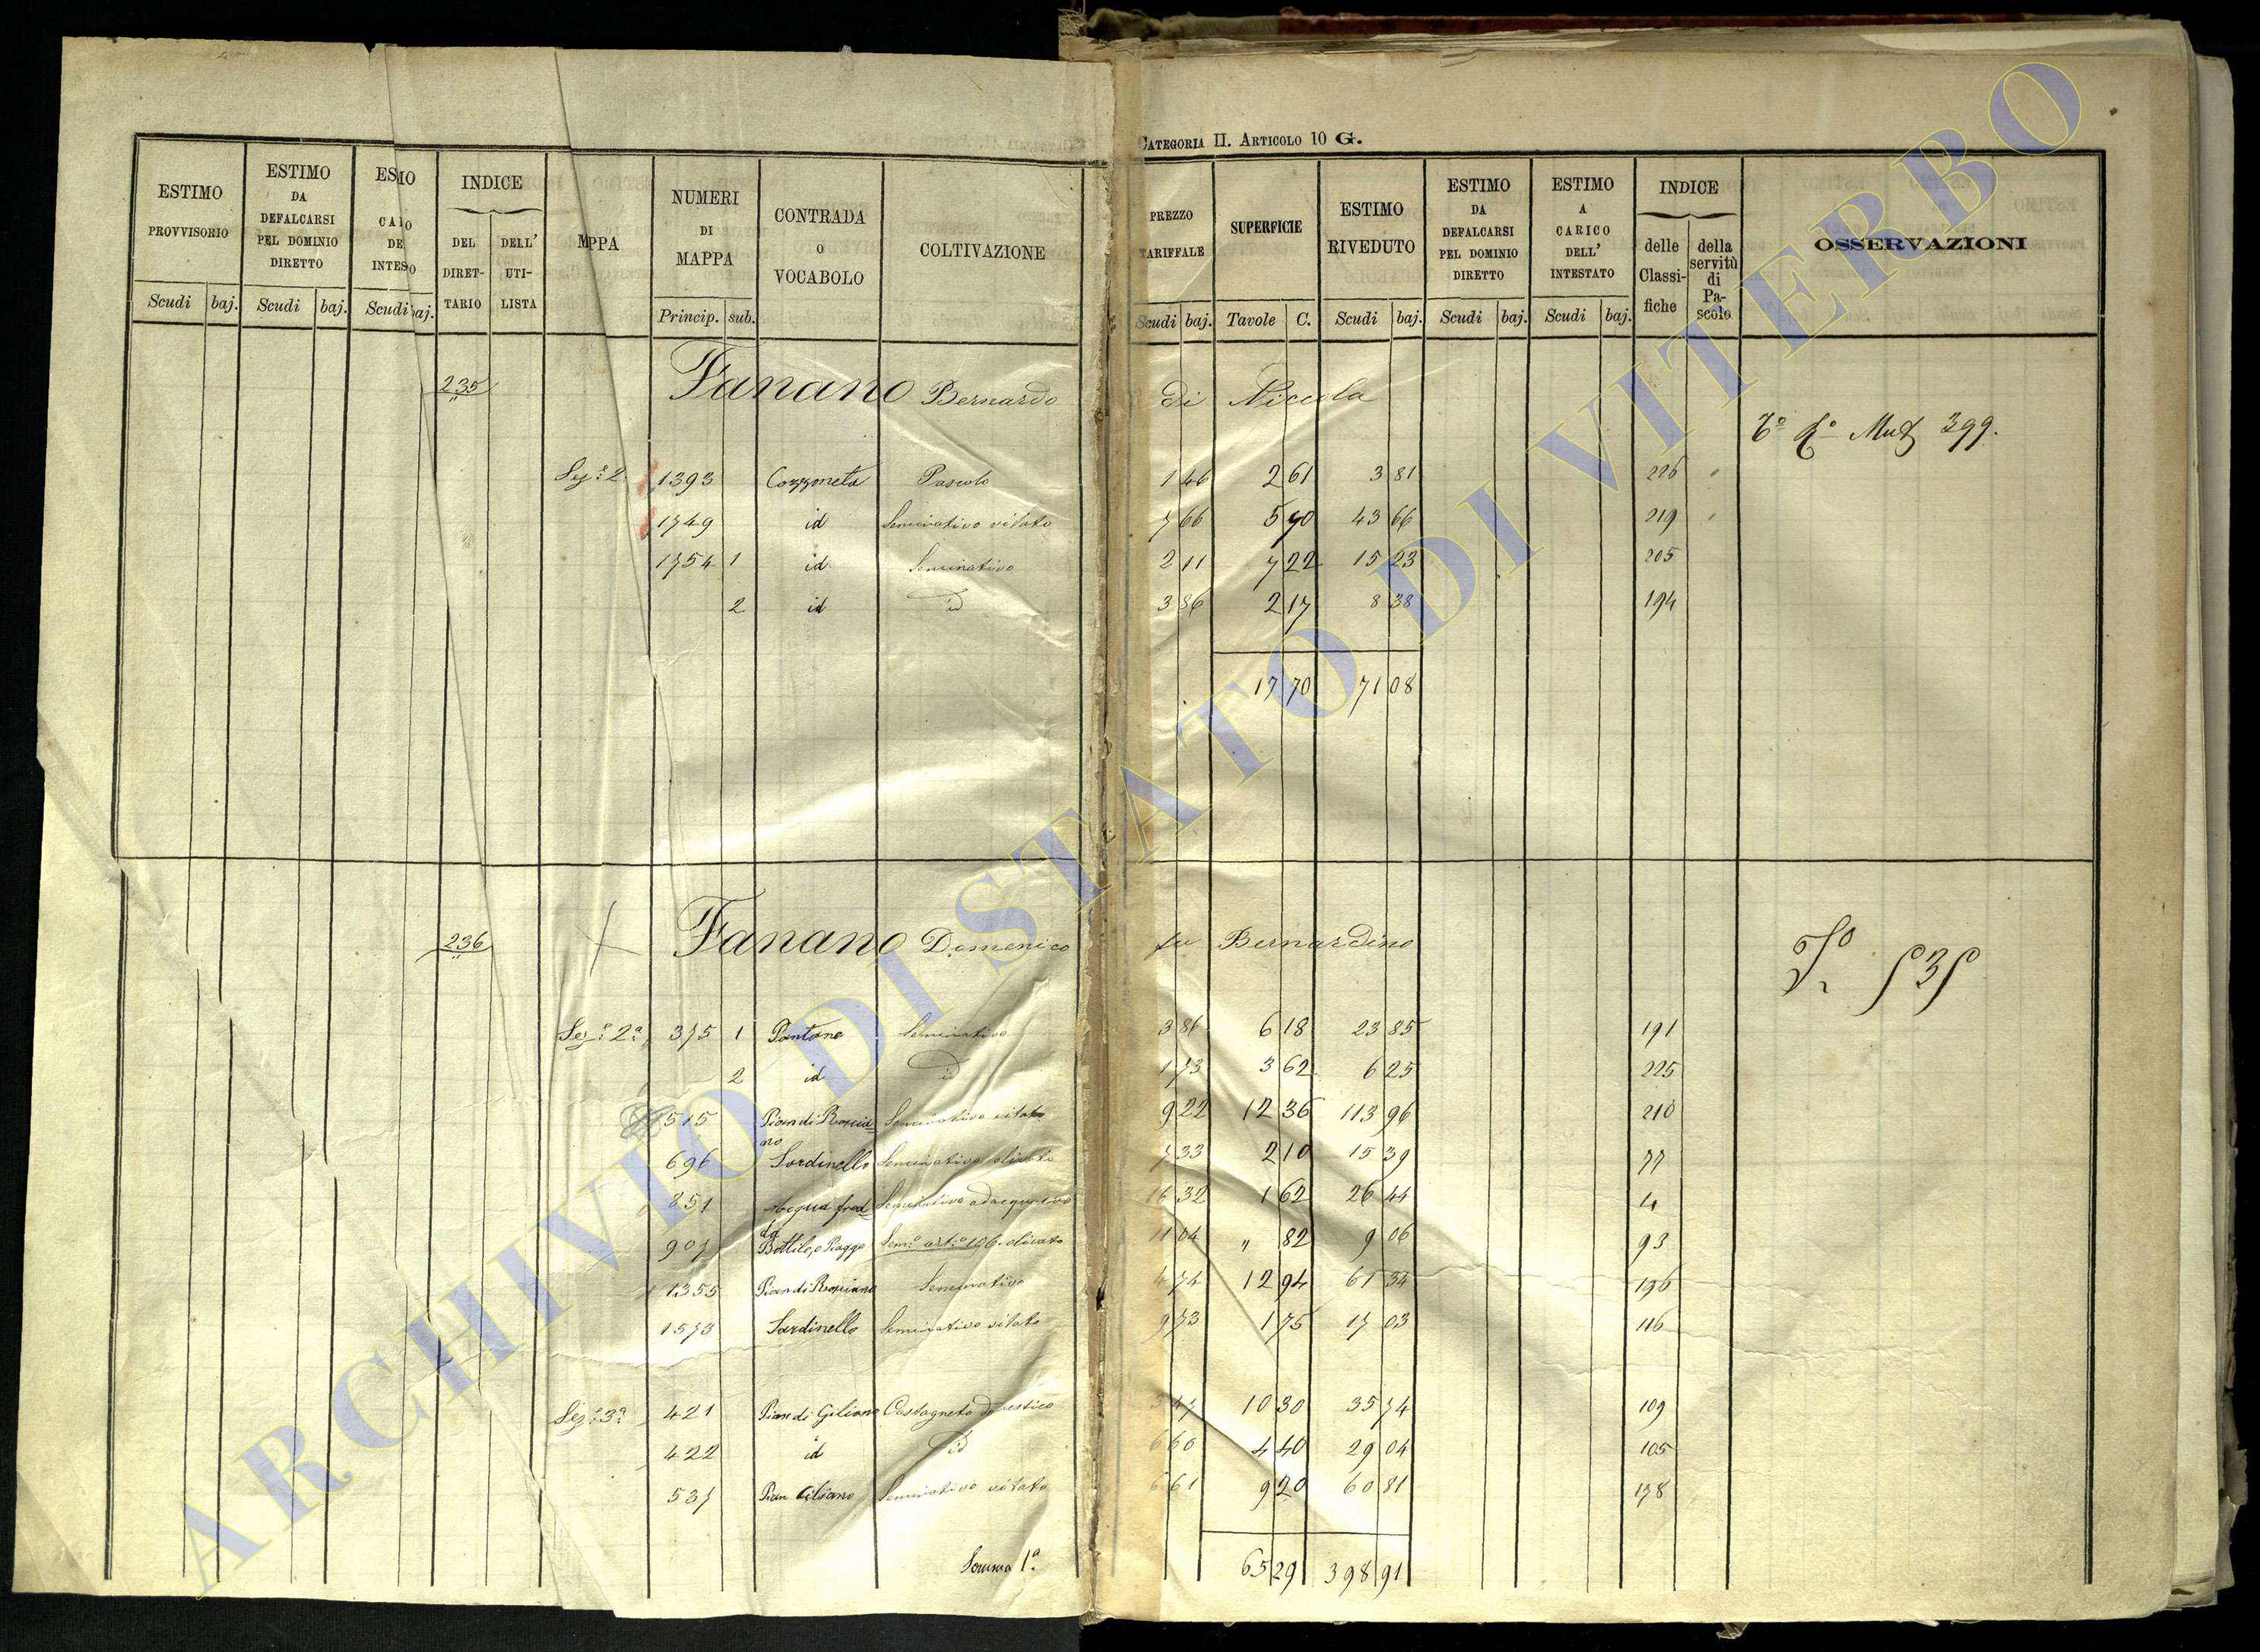 CATEGORIA II. ARTICOLO 10 G.
ESTIMO PROVVISORIO
ESTIMO DA DEFALCARSI PEL DOMINIO DIRETTO
INDICE
DEL DIRETTARIO
DELL' UTILISTA
MPPA
NUMERI DI MAPPA
CONTRADA O VOCABOLO
COLTIVAZIONE
PREZZO TARIFFALE
SUPERFICIE
ESTIMO RIVEDUTO
ESTIMO DA DEFALCARSI PEL DOMINIO DIRETTO
ESTIMO A CARICO DELL' INTESTATO
INDICE
delle Classifiche
della servitù di Pascolo
OSSERVAZIONI
Scudi baj. Scudi baj. Scudi baj. Princip. sub. Scudi baj. Tavole C. Scudi baj. Scudi baj. Scudi baj.
235 Fanano Bernardo di Niccola
Mut 399.
Sez.e 2 1393 Cozzoneta Pascolo 1 46 2 61 3 81 226
1749 id Seminativo vitato 7 66 5 70 43 66 219
1754 1 id Seminativo 2 11 7 22 15 23 205
2 id id 3 86 2 17 8 38 194
17 70 71 08
236 Fanano Domenico fu Bernardino
535
Sez.e 2a 375 1 Pantane Seminativo 3 86 6 18 23 85 191
2 id id 1 73 3 62 6 25 225
515 Pian di Rosciano Seminativo vitato 9 22 12 36 113 96 210
696 Sardinello Seminativo olivato 7 33 2 10 15 39 77
851 Acqua fredda Seminativo adacquativo 16 32 1 62 26 44 4
907 Bottile, o Piagge Sem.o art.o 106 olivato 11 04 " 82 9 06 93
1355 Pian di Rosciano Seminativo 4 74 12 94 61 34 196
1573 Sardinello Seminativo vitato 9 73 1 75 17 03 116
Sez.e 3a 421 Pian di Giliano Castagneto domestico 3 47 10 30 35 74 109
422 id id 6 60 4 40 29 04 105
537 Pian Giliano Seminativo vitato 6 61 9 20 60 81 138
Somma 1a. 65 29 398 91
ARCHIVIO DI STATO DI VITERBO